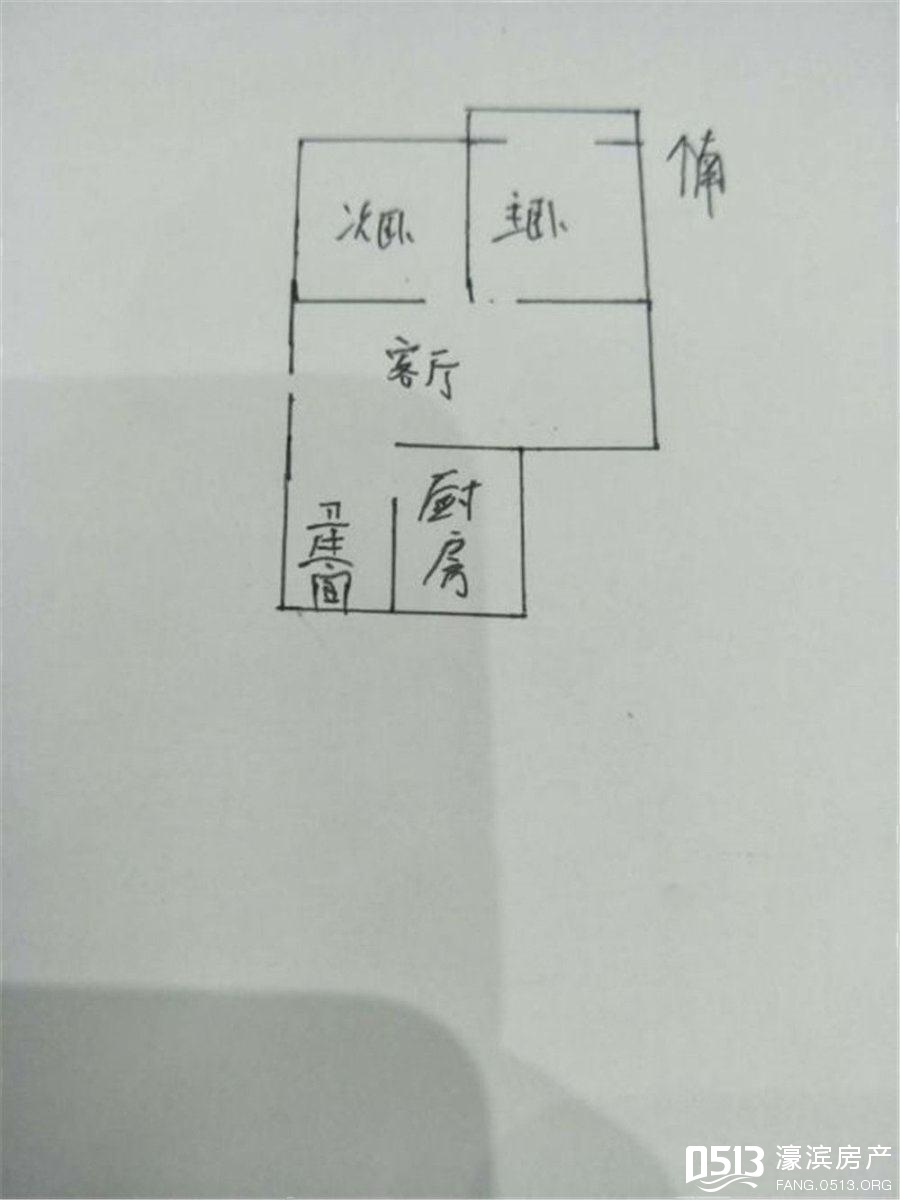 南
次卧
主卧
客厅
厨房
卫生间
0513 濠滨房产
FANG.0513.ORG